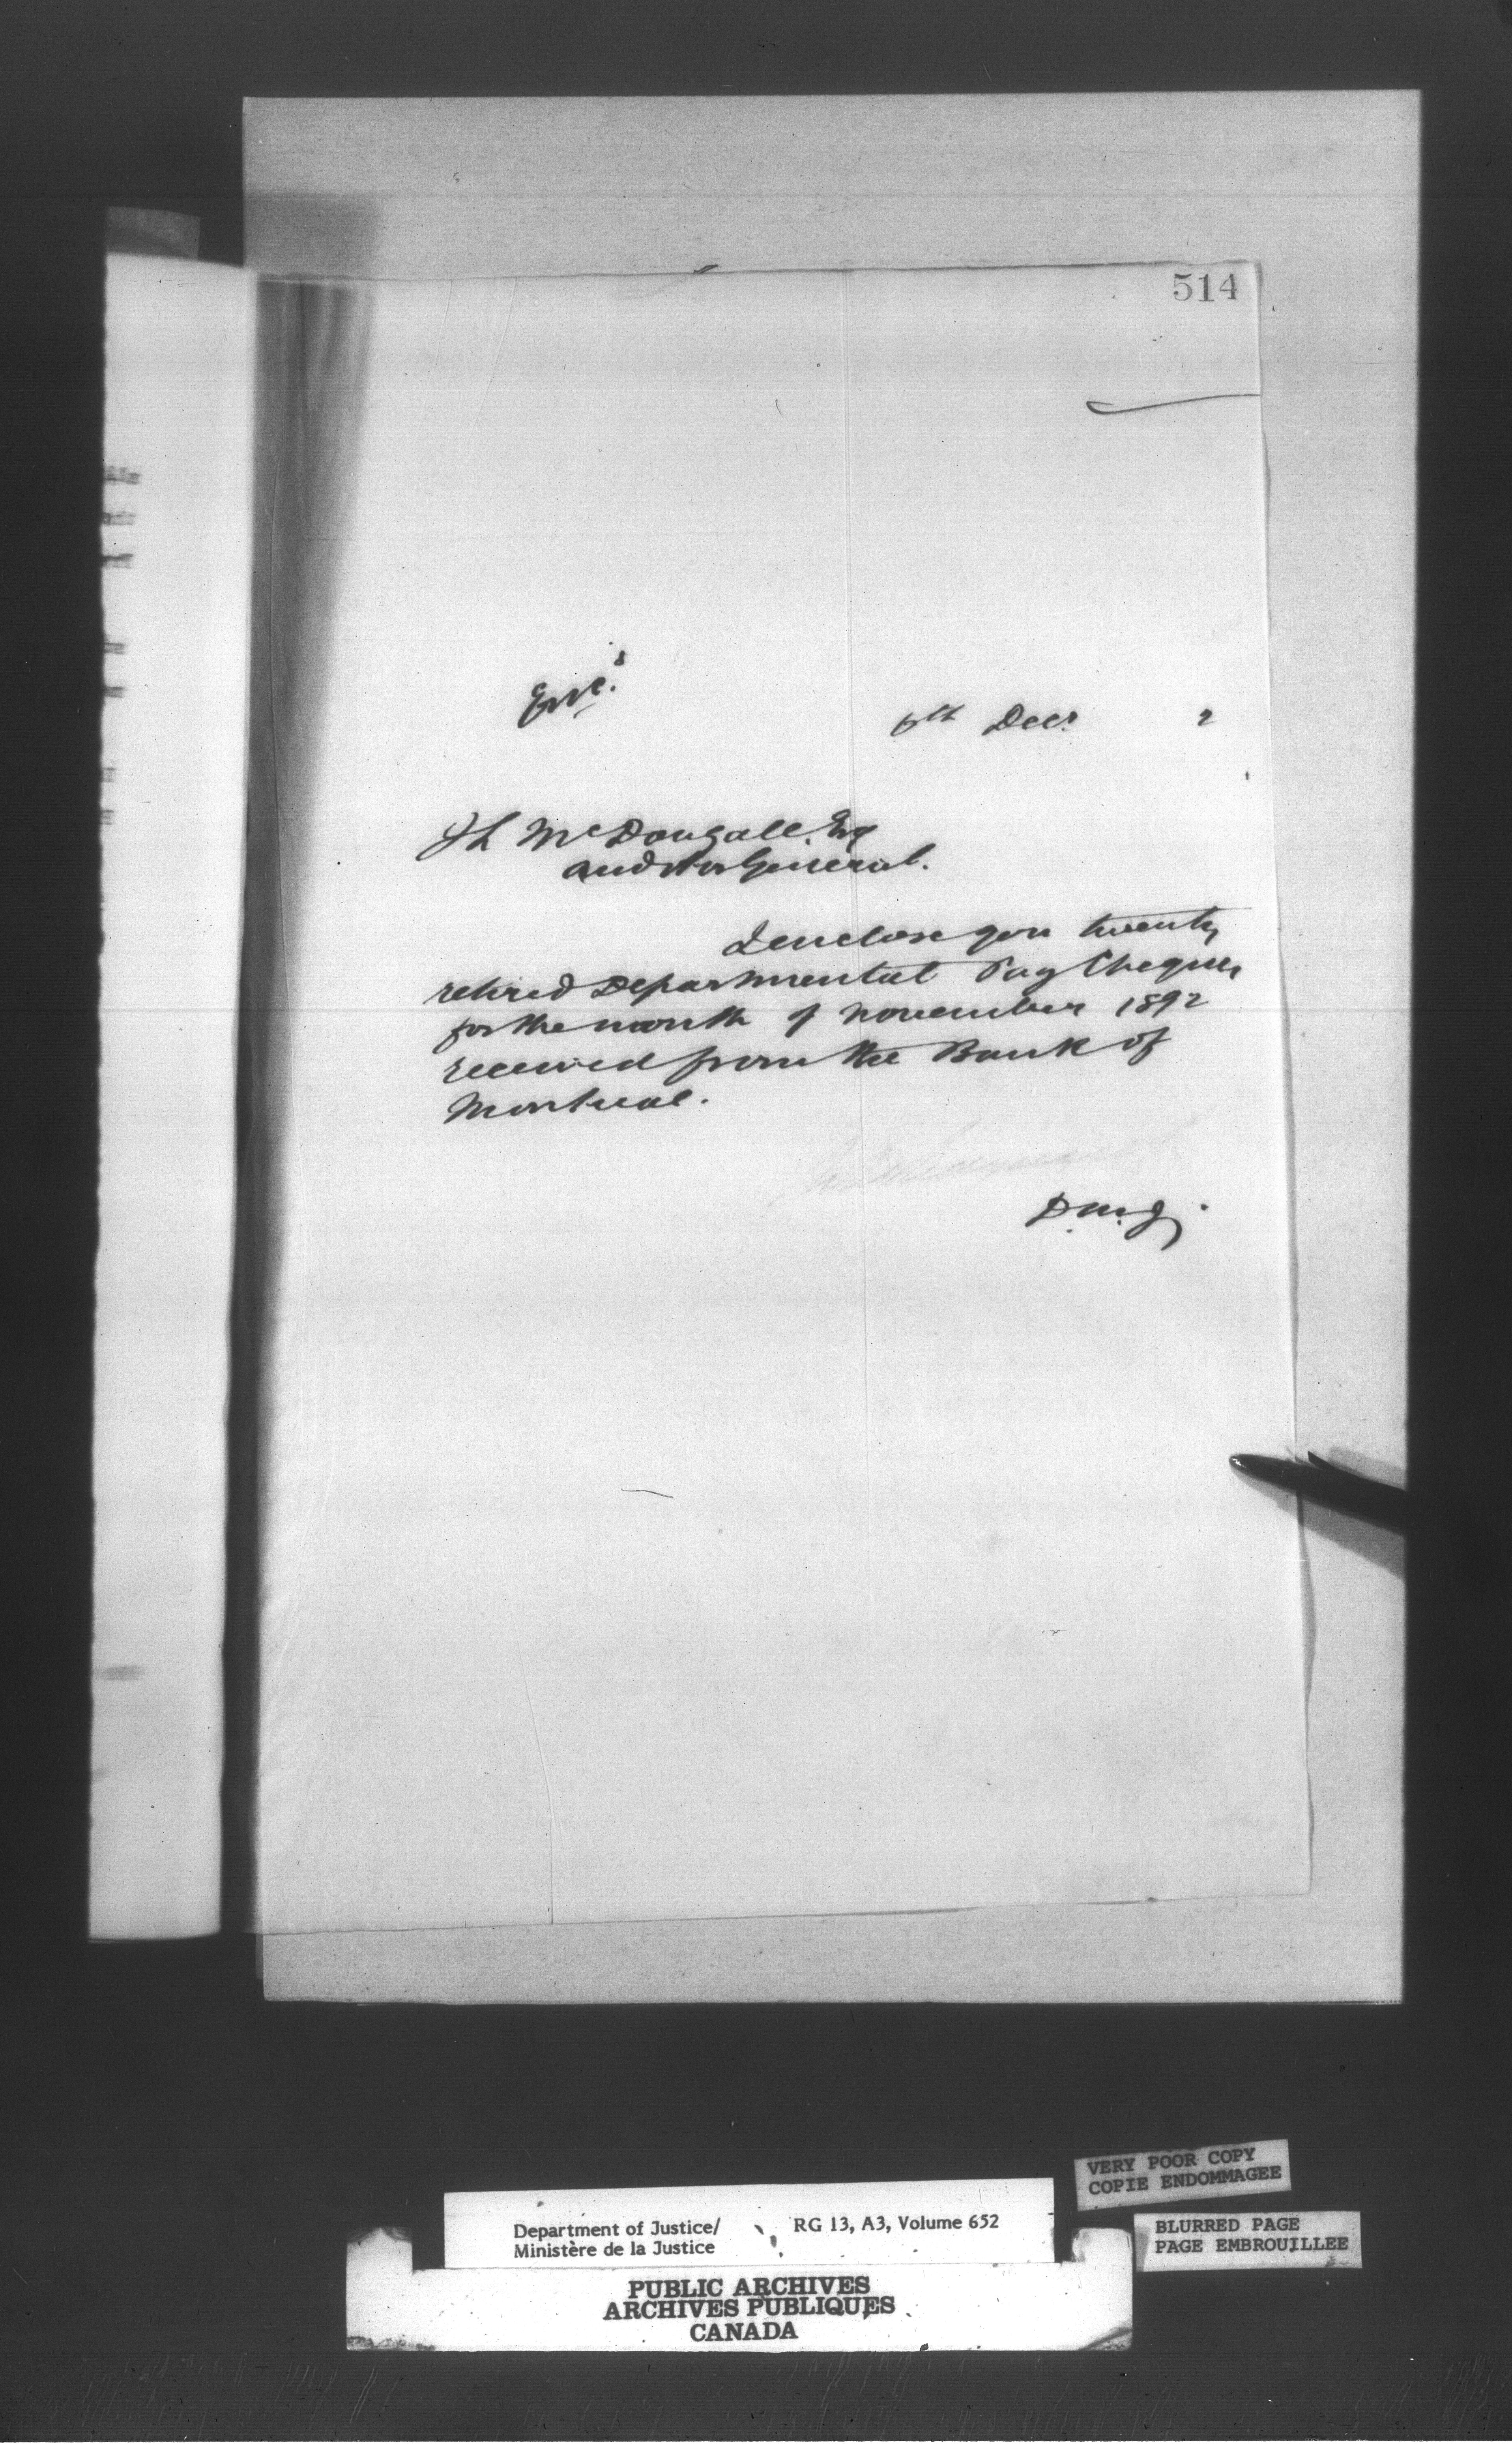 514
Enc.s
6th Decr 2
J L McDougall. Esq
Auditor General.
I enclose you twenty
retired Departmental Pay Cheques
for the month of November 1892
received from the Bank of
Montreal.
D.M.J.
VERY POOR COPY
COPIE ENDOMMAGEE
Department of Justice/ RG 13, A3, Volume 652
Ministère de la Justice
BLURRED PAGE
PAGE EMBROUILLEE
PUBLIC ARCHIVES
ARCHIVES PUBLIQUES
CANADA